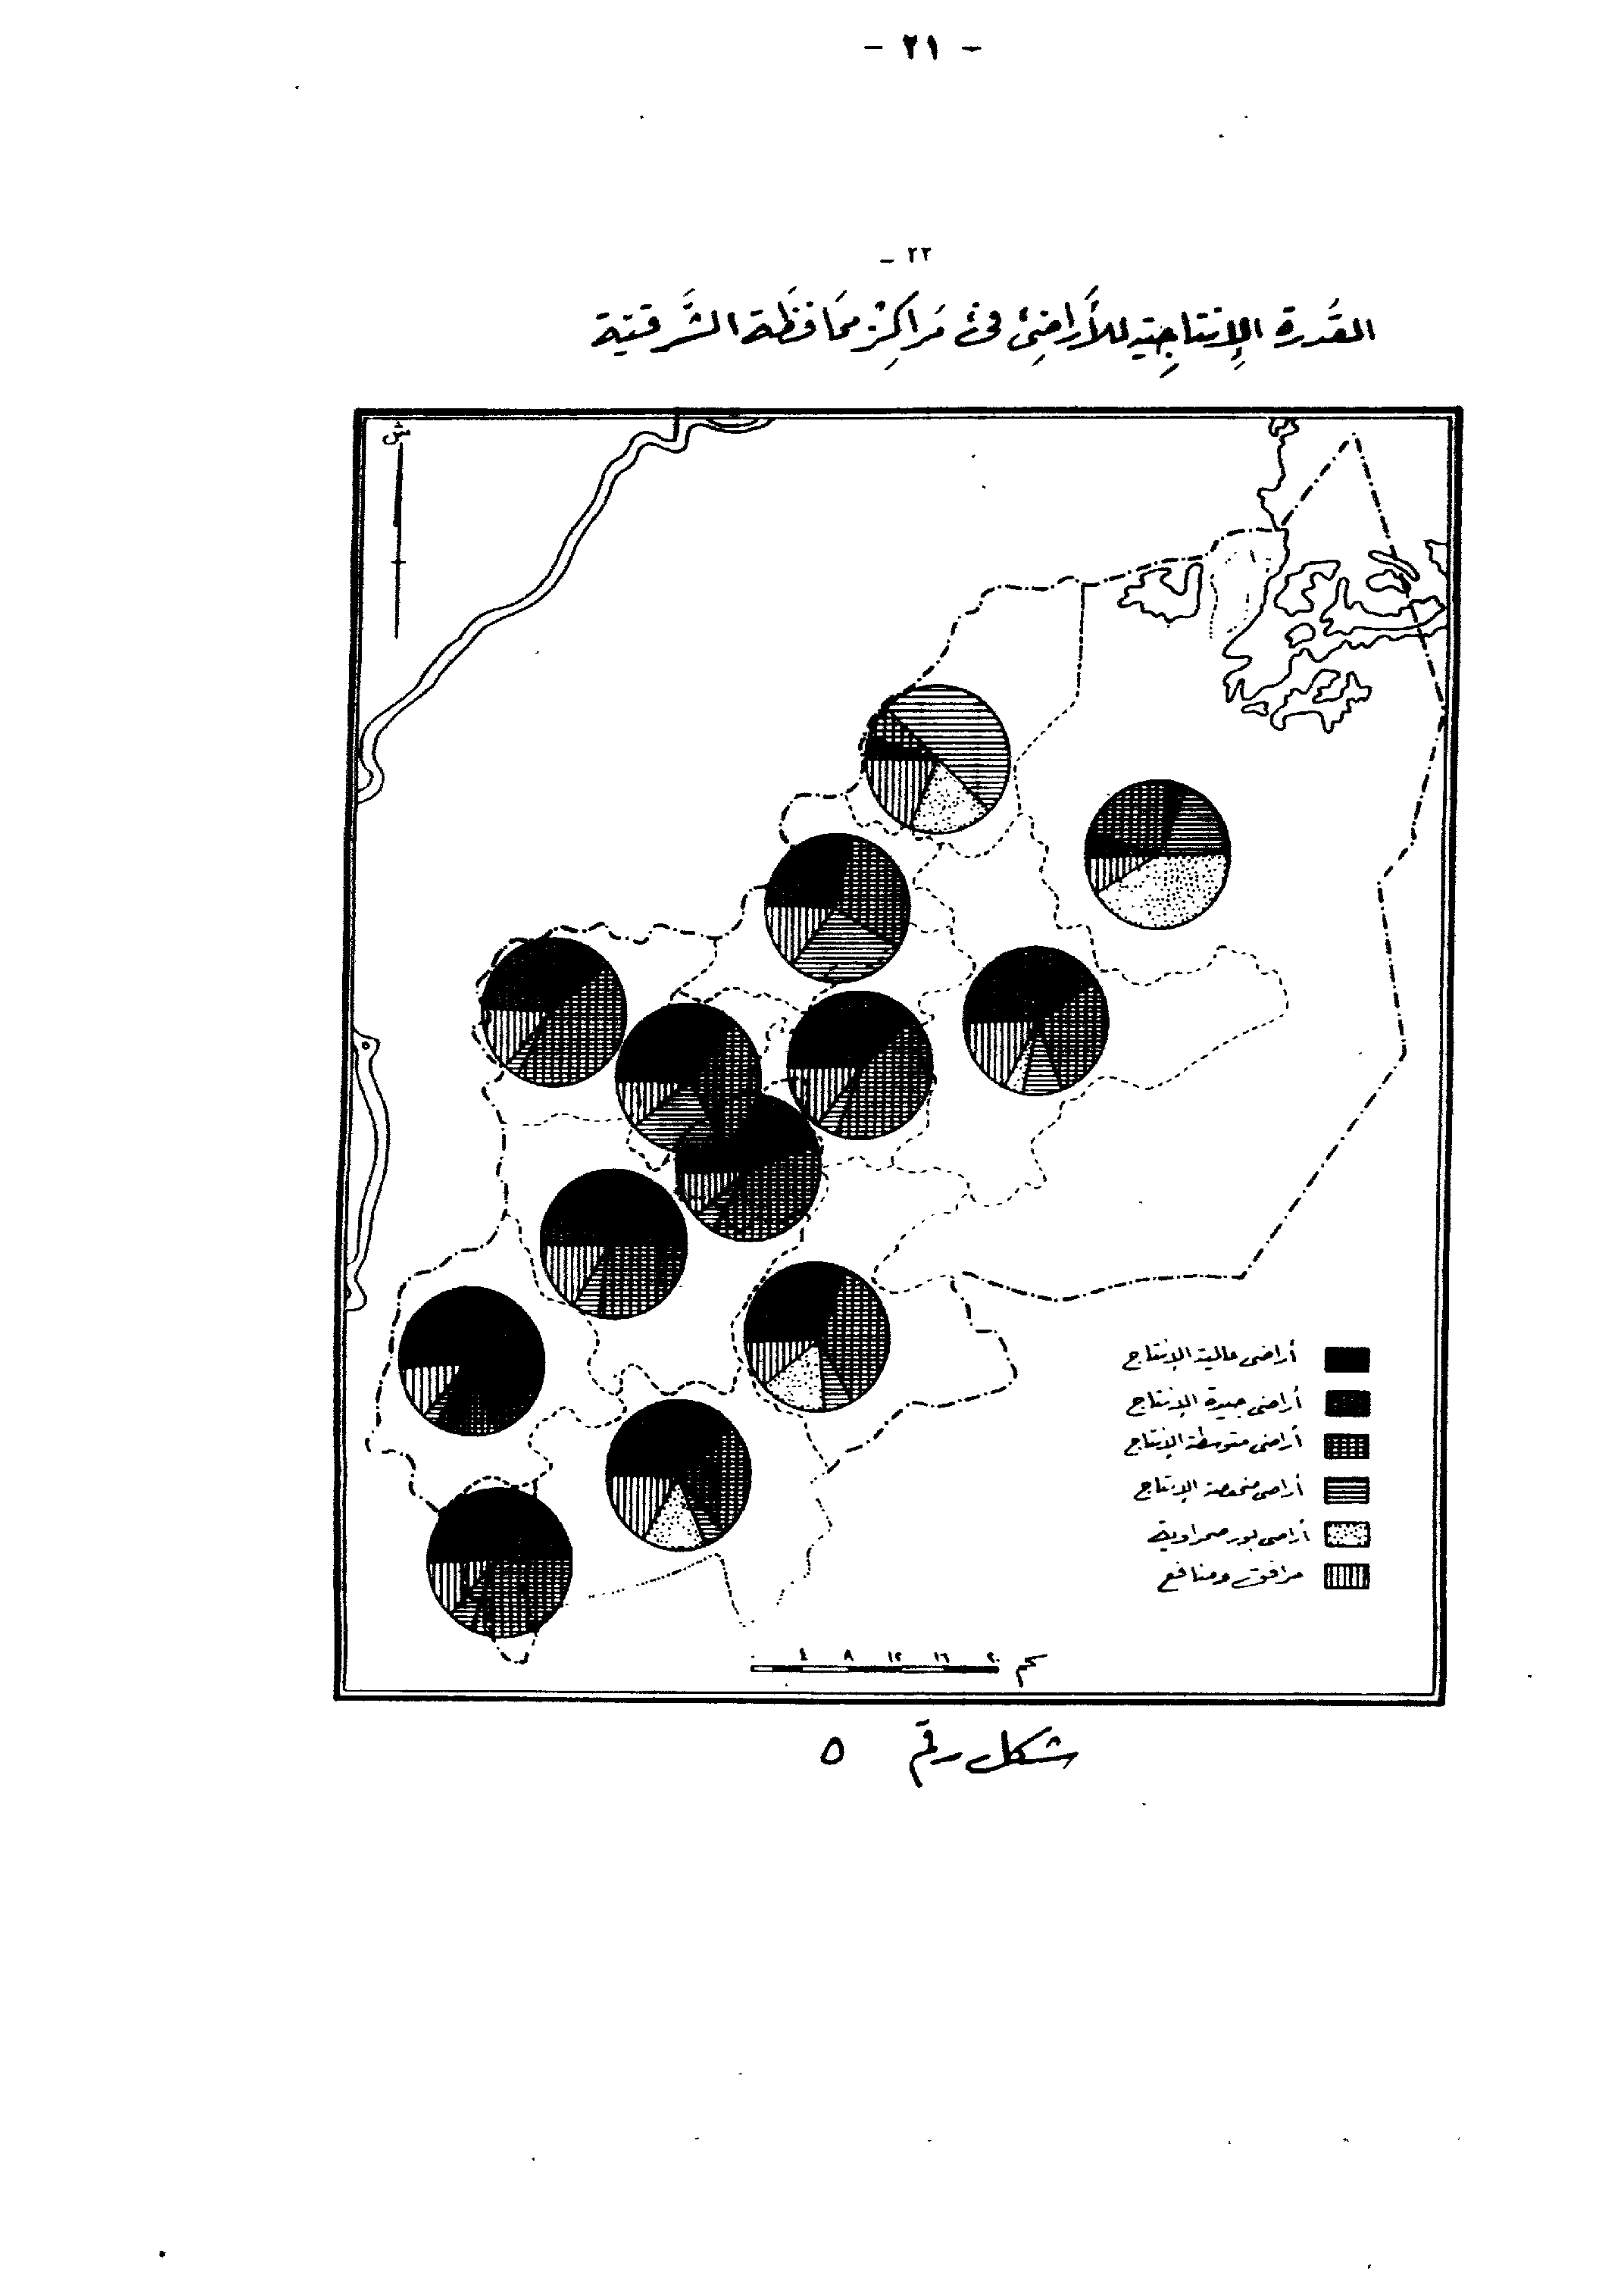 - ٢١ -
٢٢ -
القدرة الإنتاجية للأراضى فى مراكز محافظة الشرقية
ش
أراضى عالية الإنتاج
أراضى جيدة الإنتاج
أراضى متوسطة الإنتاج
أراضى منخفضة الإنتاج
أراضى بور صحراوية
مرافق ومنافع
٤ ٨ ١٢ ١٦ ٢٠ كم
شكل رقم ٥